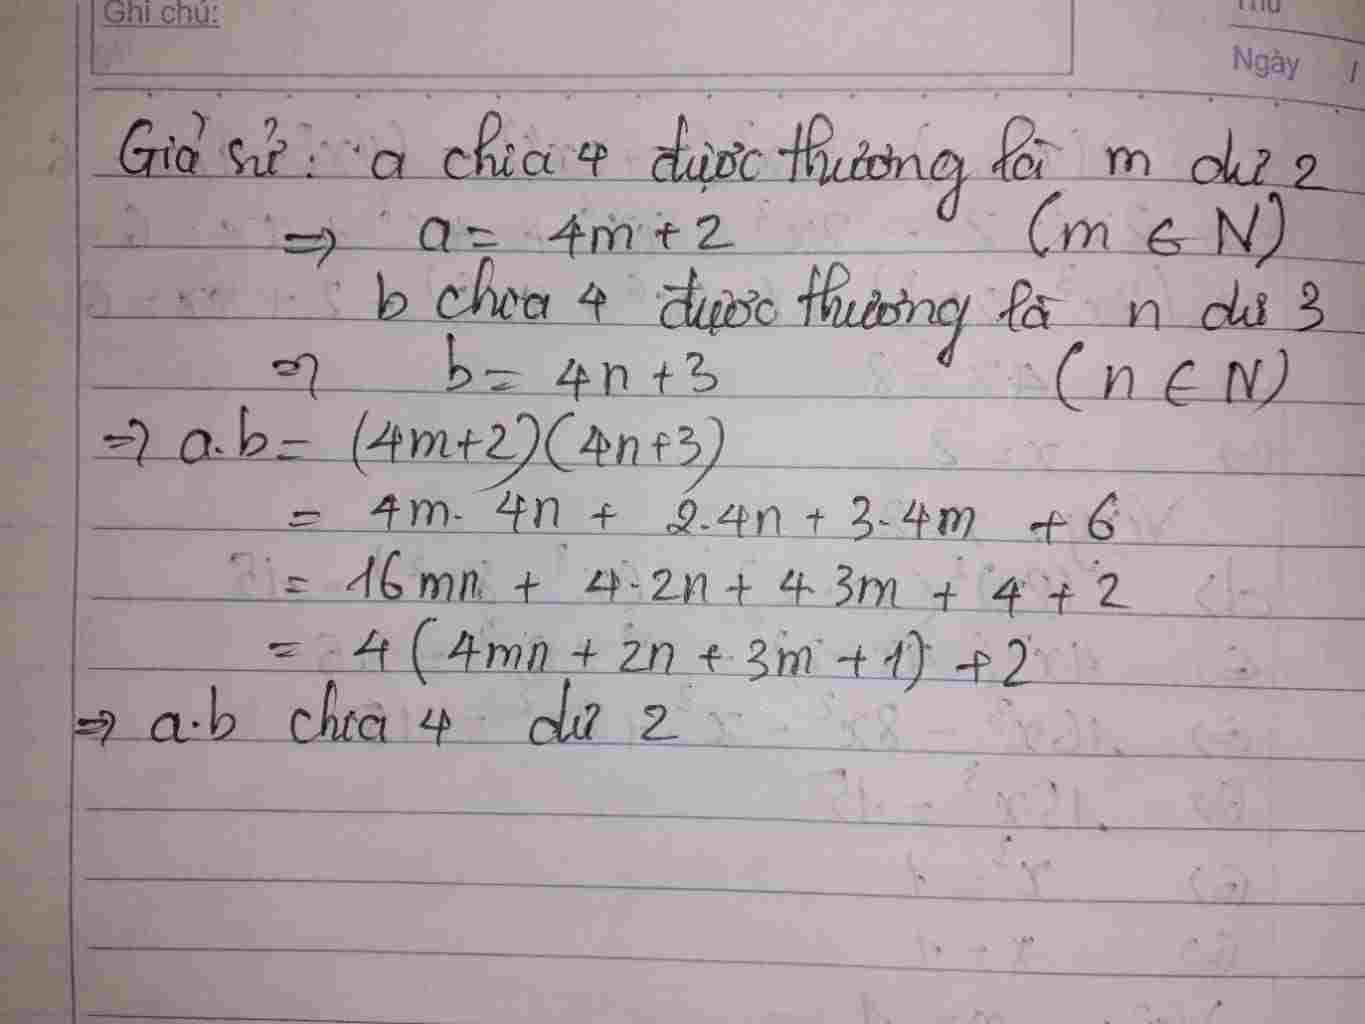 Ghi chú:
Thứ
Ngày /
Giả sử: a chia 4 được thương là m dư 2
⇒ a = 4m + 2 (m ∈ N)
b chia 4 được thương là n dư 3
⇒ b = 4n + 3 (n ∈ N)
⇒ a.b = (4m+2)(4n+3)
= 4m. 4n + 2.4n + 3.4m + 6
= 16mn + 4.2n + 4.3m + 4 + 2
= 4(4mn + 2n + 3m + 1) + 2
⇒ a.b chia 4 dư 2